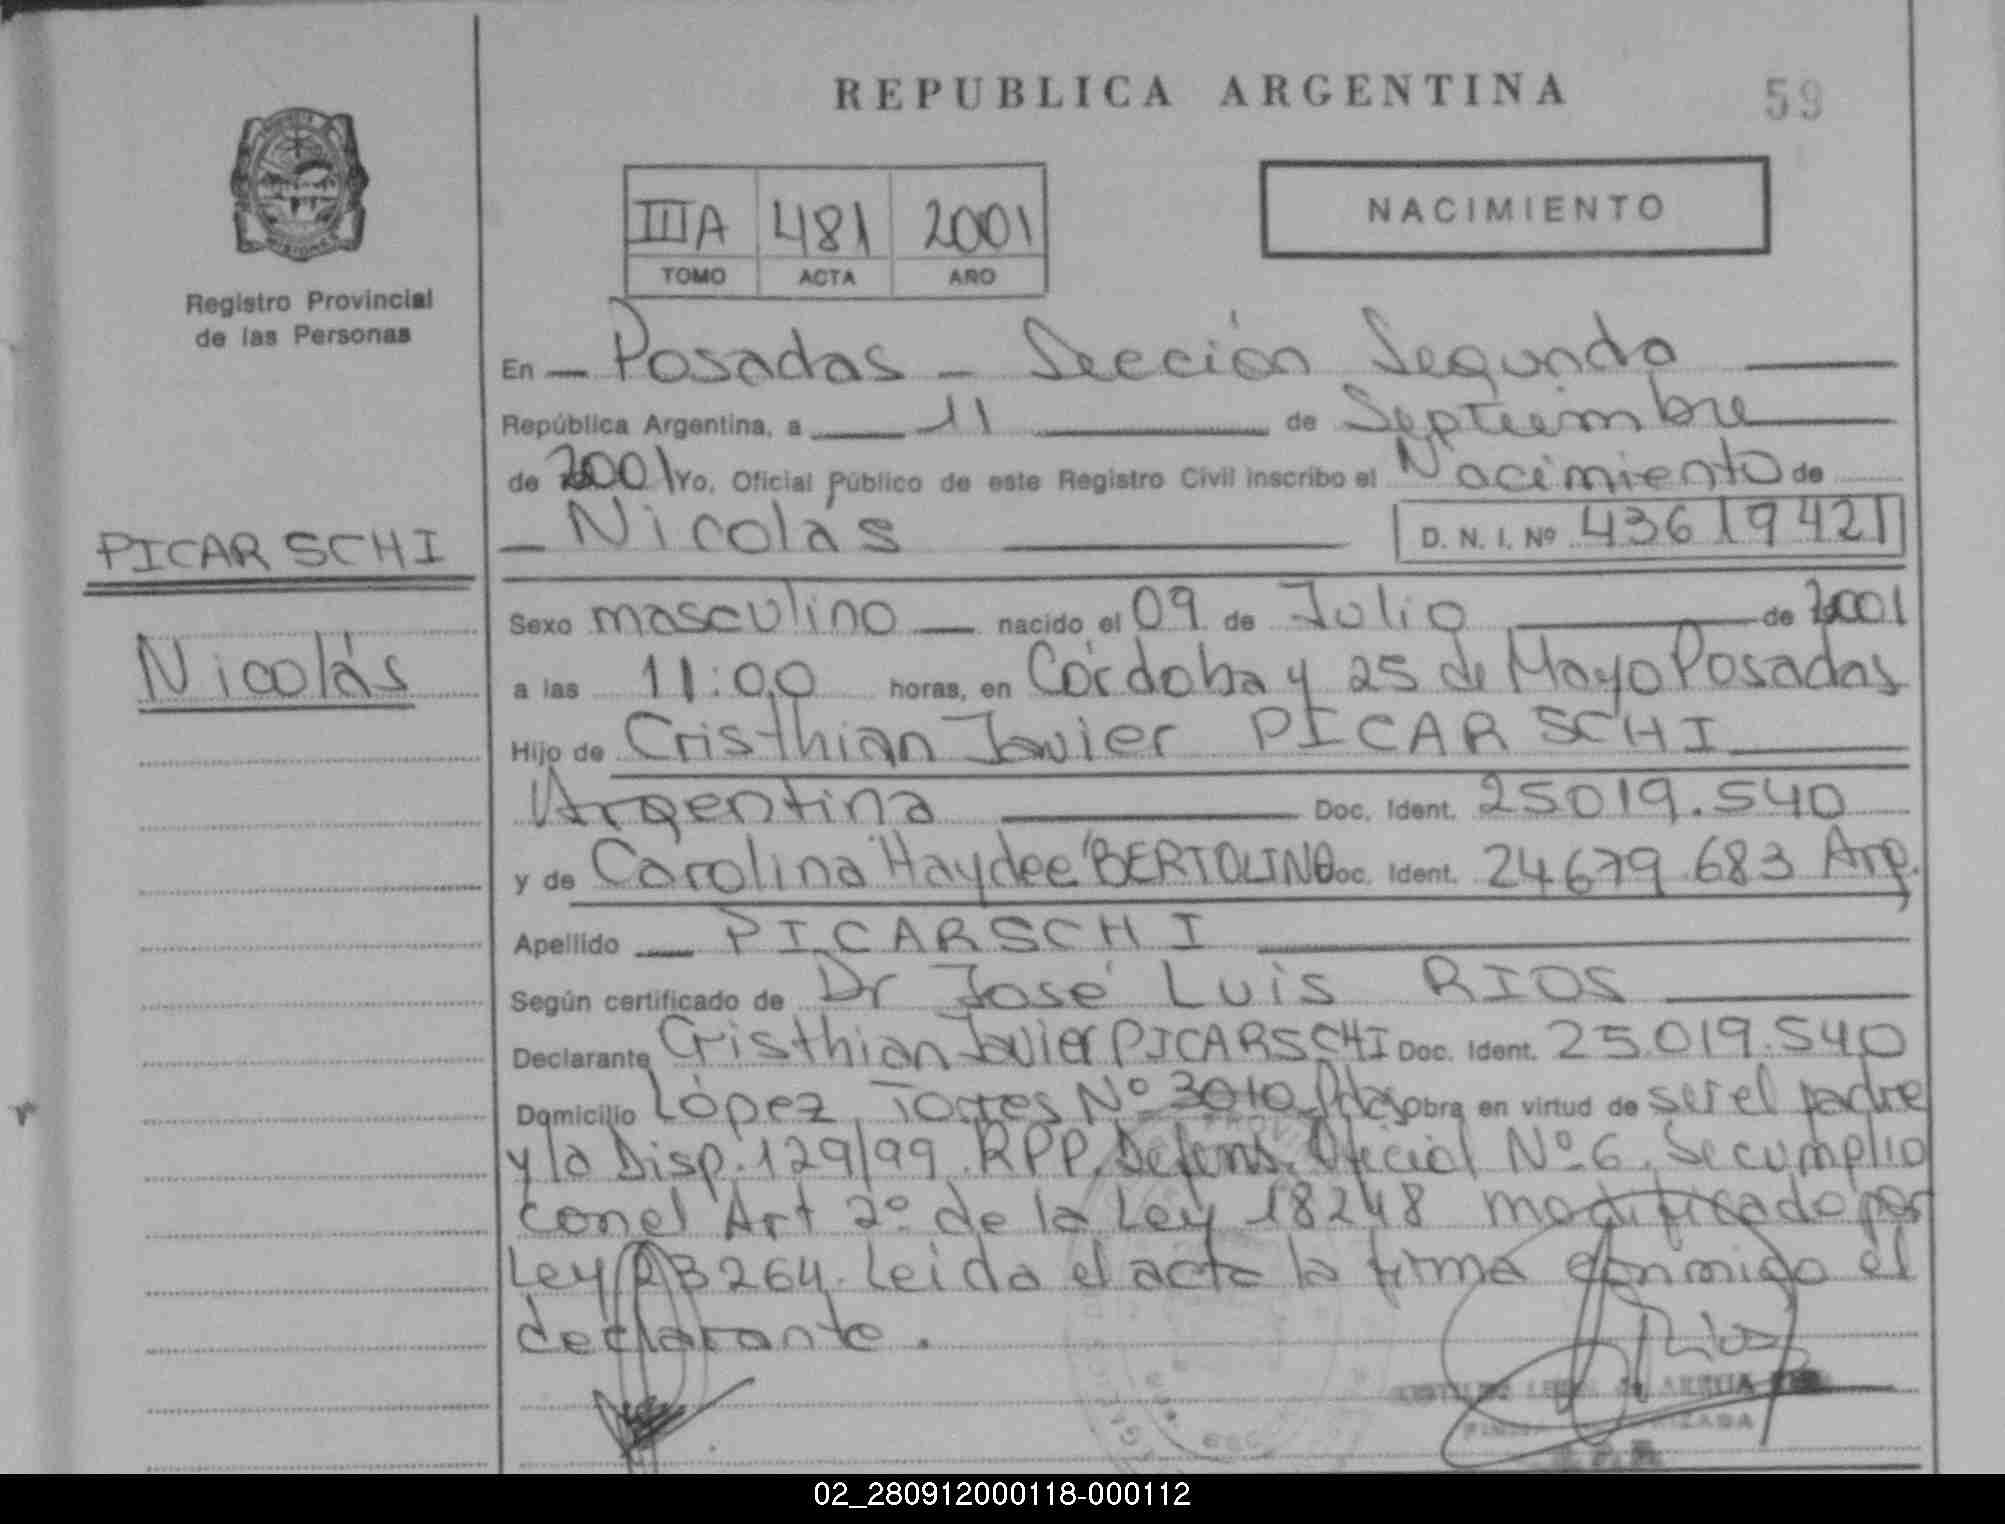 REPUBLICA ARGENTINA
59
NACIMIENTO
IIIA 481 2001
TOMO ACTA AÑO
Registro Provincial
de las Personas
En Posadas - Sección Segunda
República Argentina, a 11 de Septiembre
de 2001 Yo, Oficial Público de este Registro Civil inscribo el Nacimiento de
Nicolás D. N. I. Nº 43619421
PICARSCHI
Nicolás
Sexo masculino nacido el 09 de Julio de 2001
a las 11:00 horas, en Córdoba y 25 de Mayo Posadas
Hijo de Cristhian Javier PICARSCHI
Argentina Doc. Ident. 25019.540
y de Carolina Haydee BERTOLINO Doc. Ident. 24679.683 Arg.
Apellido PICARSCHI
Según certificado de Dr José Luis RIOS
Declarante Cristhian Javier PICARSCHI Doc. Ident. 25.019.540
Domicilio López Torres Nº 3010 Pdas Obra en virtud de ser el padre
y la Disp. 129/99 RPP. Defens. Oficial Nº 6. Se cumplio
con el Art 2º de la Ley 18248 modificado por
Ley 23264. Leida el acta la firma conmigo el
declarante.
02_280912000118-000112